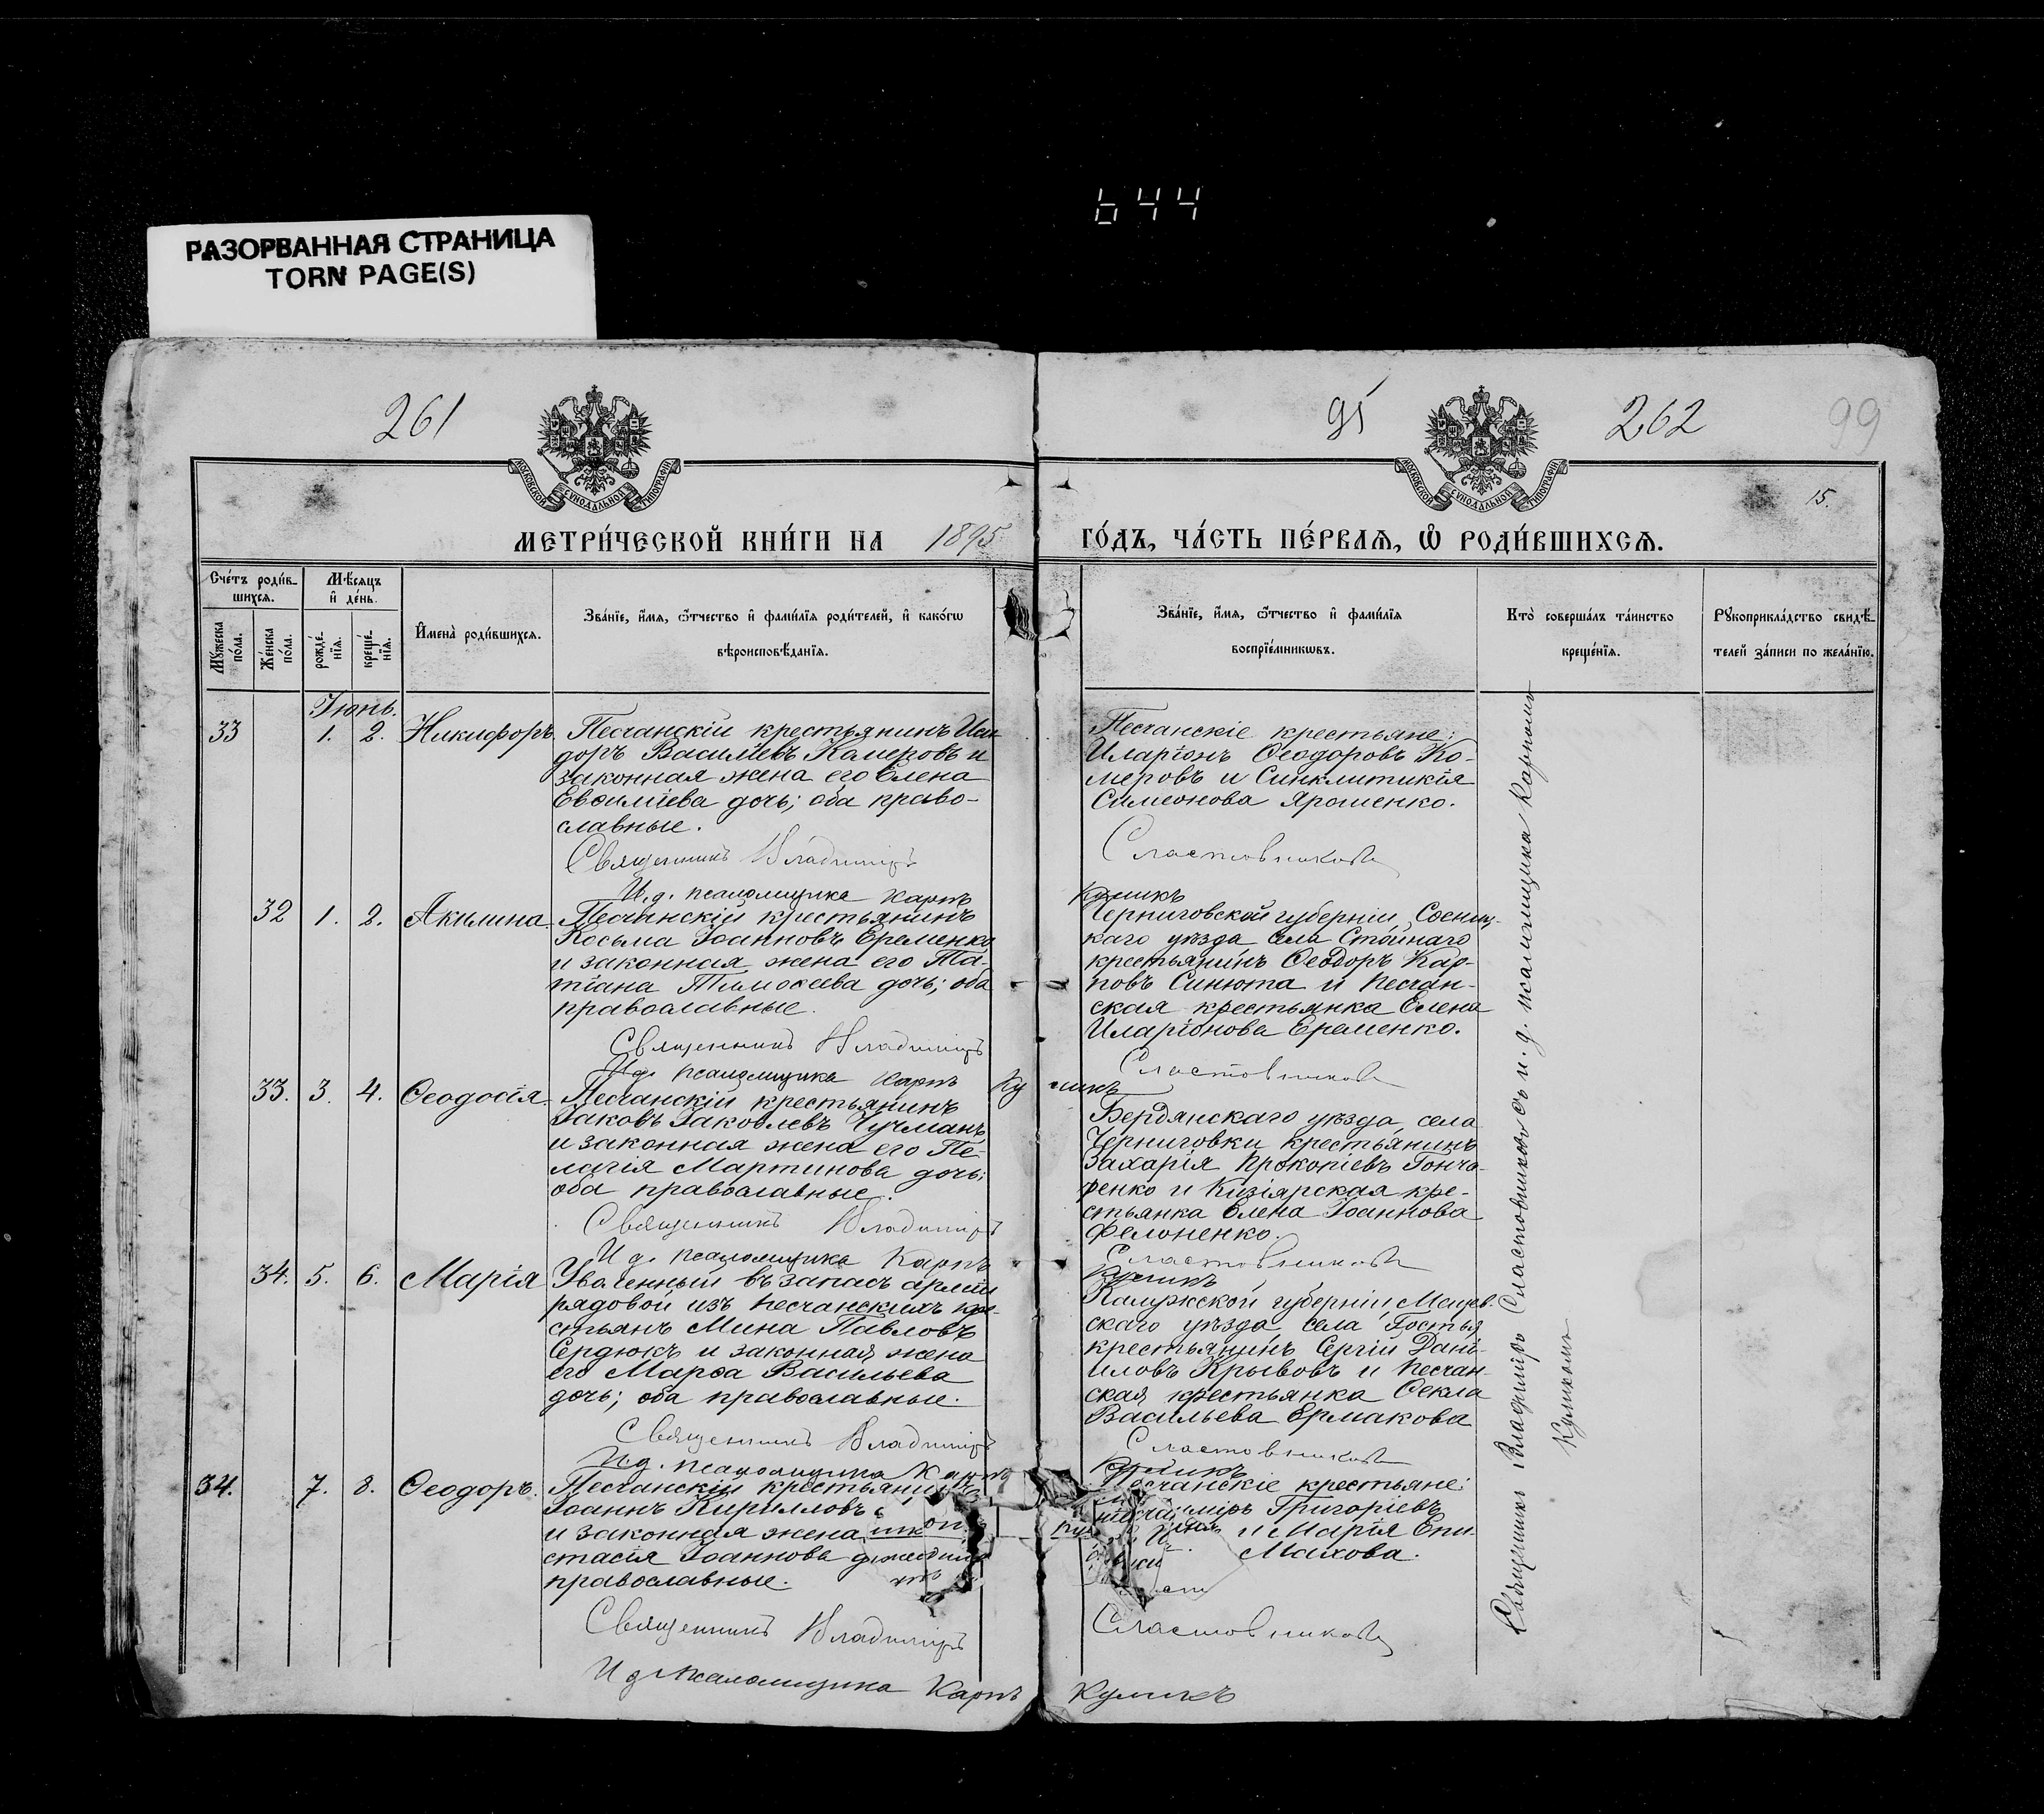 644
РАЗОРВАННАЯ СТРАНИЦА
TORN PAGE(S)
261
95
262
99
МОСКОВСКОЙ СѴНОДАЛЬНОЙ ТИПОГРАФІИ
МОСКОВСКОЙ СѴНОДАЛЬНОЙ ТИПОГРАФІИ
15.
МЕТРИ́ЧЕСКОЙ КНИ́ГИ НА 1895
ГО́ДЪ, ЧА́СТЬ ПЕ́РВАЯ, Ѡ҆ РОДИ́ВШИХСЯ.
Сче́тъ роди́в-
шихся.
Мѣ́сяцъ
и҆ де́нь.
Мꙋ́жеска
по́ла.
Же́нска
по́ла.
рожде́-
нїѧ.
креще́-
нїѧ.
И҆мена̀ роди́вшихся.
Зва́нїе, и҆́мѧ, ѻ҆́тчество и҆ фамѝлїѧ роди́телей, и҆ како́гѡ
вѣроисповѣ́данїѧ.
Зва́нїе, и҆́мѧ, ѻ҆́тчество и҆ фами́лїѧ
воспрїе́мникѡвъ.
Кто̀ соверша́лъ та́инство
креще́нїѧ.
Рꙋкоприкла́дство свидѣ́-
телей за́писи по жела́нїю.
Іюнь.
33
1.
2.
Никифоръ
Песчанскій крестьянинъ Иси
доръ Василіевъ Камеровъ и
законная жена его Елена
Евѳиміева дочь; оба право-
славные.
Священникъ Владиміръ
И.д. псаломщика Карпъ
Песчанскіе крестьяне:
Иларіонъ Ѳеодоровъ Ко-
меровъ и Синклитикія
Симеонова Ярошенко.
Сластовниковъ
Куликъ
32
1.
2.
Акилина.
Песчанскій крестьянинъ
Косьма Іоанновъ Еременко
и законная жена его Та-
тіана Тимоѳеева дочь; оба
православные.
Священникъ Владиміръ
И.д. псаломщика Карпъ
Черниговской губерніи, Сосниц-
каго уѣзда села Стойнаго
крестьянинъ Ѳеодоръ Кар-
повъ Синюта и песчан-
ская крестьянка Елена
Иларіонова Еременко.
Сластовниковъ
Куликъ
33.
3.
4.
Ѳеодосія.
Песчанскій крестьянинъ
Іаковъ Іаковлевъ Чучманъ
и законная жена его Пе-
лагія Мартинова дочь;
оба православные.
Священникъ Владиміръ
И д. псаломщика Карпъ
Бердянскаго уѣзда, села
Черниговки крестьянинъ
Захарія Прокопіевъ Гонча-
ренко и Кизіярская кре-
стьянка Елена Іоаннова
Фелоненко.
Сластовниковъ
Куликъ
34.
5.
6.
Марія
Уволенный въ запасъ арміи
рядовой изъ песчанскихъ кре-
стьянъ Мина Павловъ
Сердюкъ и законная жена
его Марѳа Васильева
дочь; оба православные.
Священникъ Владиміръ
И.д. псаломщика Карпъ
Калужской губерніи Мещов-
скаго уѣзда, села Гостья
крестьянинъ Сергій Дані-
иловъ Крывовъ и песчан-
ская крестьянка Ѳекла
Васильева Ермакова
Сластовниковъ
Куликъ
34.
7.
8.
Ѳеодоръ.
Песчанскій крестьянинъ
Іоаннъ Кирилловъ
и законная жена
стасія Іоаннова
православные.
Священникъ Владиміръ
И д псаломщика Карпъ
Песчанскіе крестьяне:
Григоріевъ
и Марія Епи-
Махова.
Сластовниковъ
Куликъ
Священникъ Владиміръ Сластовниковъ съ и. д. псаломщика Карпомъ
Куликомъ